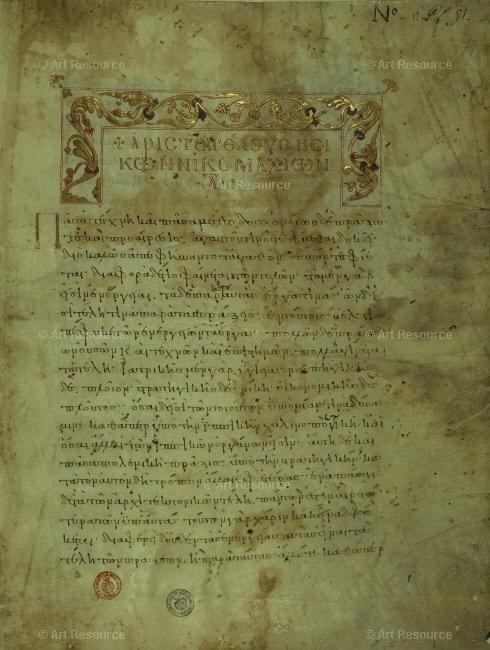 Nº. 11 Pl. 81.
+ ΑΡΙΣΤΟΤΕΛΟΥΣ ΗΘΙ
ΚΩΝ ΝΙΚΟΜΑΧΙΩΝ
Πᾶσα τέχνη καὶ πᾶσα μέθοδος· ὁμοίως δὲ πρᾶξίς
τε καὶ προαίρεσις, ἀγαθοῦ τινὸς ἐφίεσθαι δοκεῖ·
διὸ καλῶς ἀπεφήναντο τἀγαθὸν οὗ πάντα ἐφίε
ται· διαφορὰ δέ τις φαίνεται τῶν τελῶν· τὰ μὲν γάρ
εἰσιν ἐνέργειαι· τὰ δὲ παρ' αὐτὰς ἔργα τινά· ὧν δ' εἰ
σὶ τέλη τινὰ παρὰ τὰς πράξεις, ἐν τούτοις βελτίω
πέφυκε τῶν ἐνεργειῶν τὰ ἔργα· πολλῶν δὲ πράξε
ων οὐσῶν καὶ τεχνῶν καὶ ἐπιστημῶν, πολλὰ γίνεται καὶ
τὰ τέλη· ἰατρικῆς μὲν γὰρ, ὑγίεια· ναυπηγικῆς
δὲ, πλοῖον· στρατηγικῆς δὲ, νίκη· οἰκονομικῆς δὲ,
πλοῦτος· ὅσαι δ' εἰσὶ τῶν τοιούτων ὑπὸ μίαν τινὰ δύνα
μιν· καθάπερ ὑπὸ τὴν ἱππικὴν χαλινοποιικὴ καὶ
ὅσαι ἄλλαι τῶν ἱππικῶν ὀργάνων εἰσὶν· αὕτη δὲ καὶ
πᾶσα πολεμικὴ πρᾶξις ὑπὸ τὴν στρατηγικήν· κα
τὰ τὸν αὐτὸν δὴ τρόπον ἄλλαι ὑφ' ἑτέρας· ἐν ἁπάσαις
δὲ τὰ τῶν ἀρχιτεκτονικῶν τέλη, πάντων ἐστὶν αἱρετώ
τερα τῶν ὑπ' αὐτά· τούτων γὰρ χάριν κἀκεῖνα διώ
κεται· διαφέρει δ' οὐδὲν τὰς ἐνεργείας αὐτὰς εἶναι τὰ
τέλη τῶν πράξεων, ἢ παρὰ ταύτας ἄλλο τι, καθάπερ
1
173